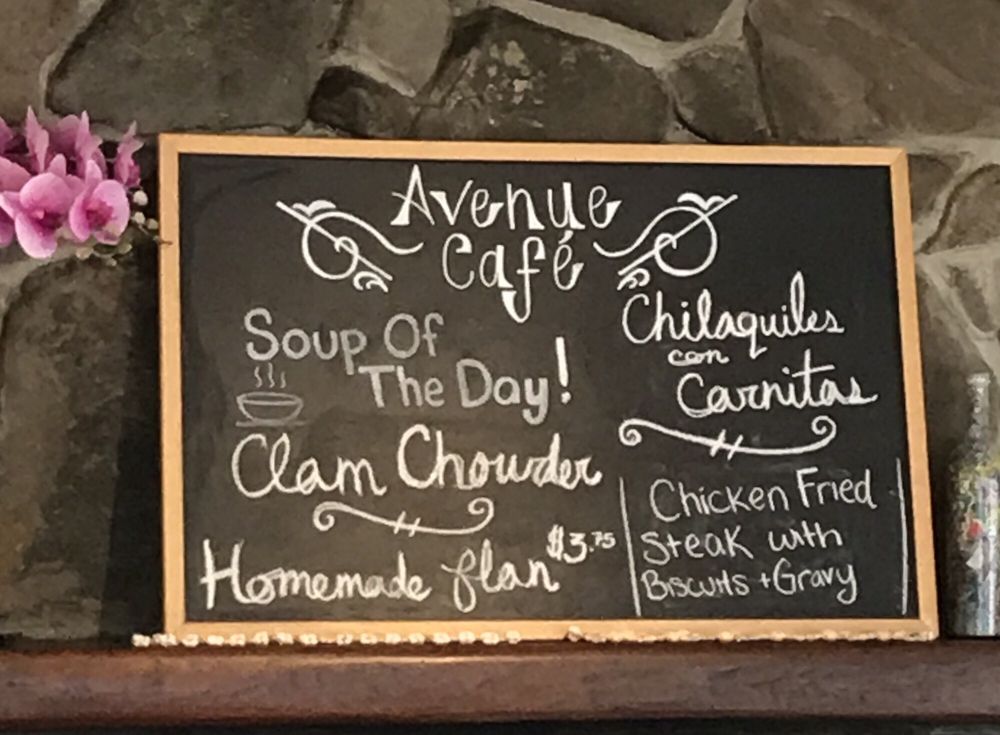 Avenue
Café
Soup Of
The Day!
Clam Chowder
Homemade flan $3.75
Chilaquiles
con
Carnitas
Chicken Fried
Steak with
Biscuits + Gravy